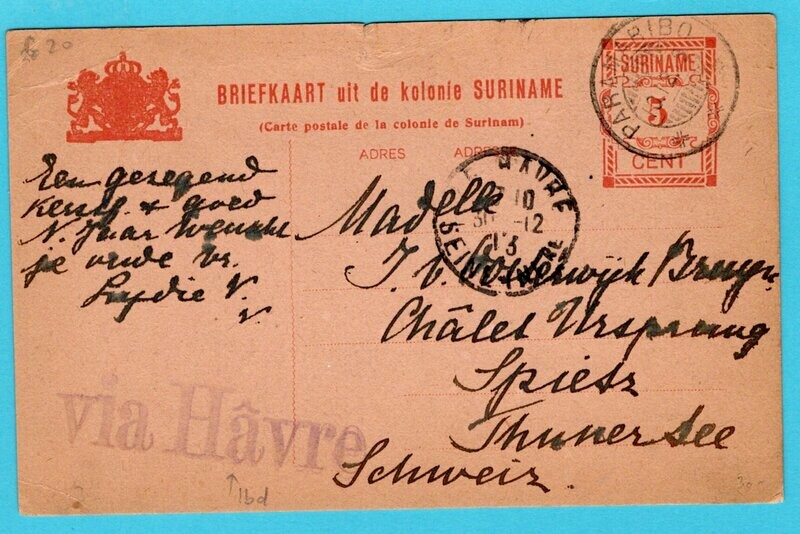 20
BRIEFKAART uit de kolonie SURINAME
(Carte postale de la colonie de Surinam)
ADRES ADRES
SURINAME
5
CENT
PARAMARIBO
HAVRE
10
30 -12
13
SEINE
Een gezegend
Kerstf. + goed
N. Jaar wenscht
je
Lydie V.
V.
Madelle
J. v. Oosterwijk Bruyn
Châlet Ursprung
Spiesz
Thuner See
Schweiz.
via Hâvre
↑ lbd